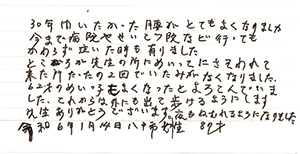 30年間いたかった腰が とてもよくなりました
今まで病院やせいこつ院など 行っても
かわらず泣いた時も有りました
ところが先生の所にめいってにさそわれて
来た所たったの2回でいたみがなくなりました。
62才のめい子もよくなったとよろこんでいま
した。これからは外にも出て歩けるようにします
先生ありがとうございます。夜もねむれるようになりました。
令和6年1月14日八十市 女性 89才